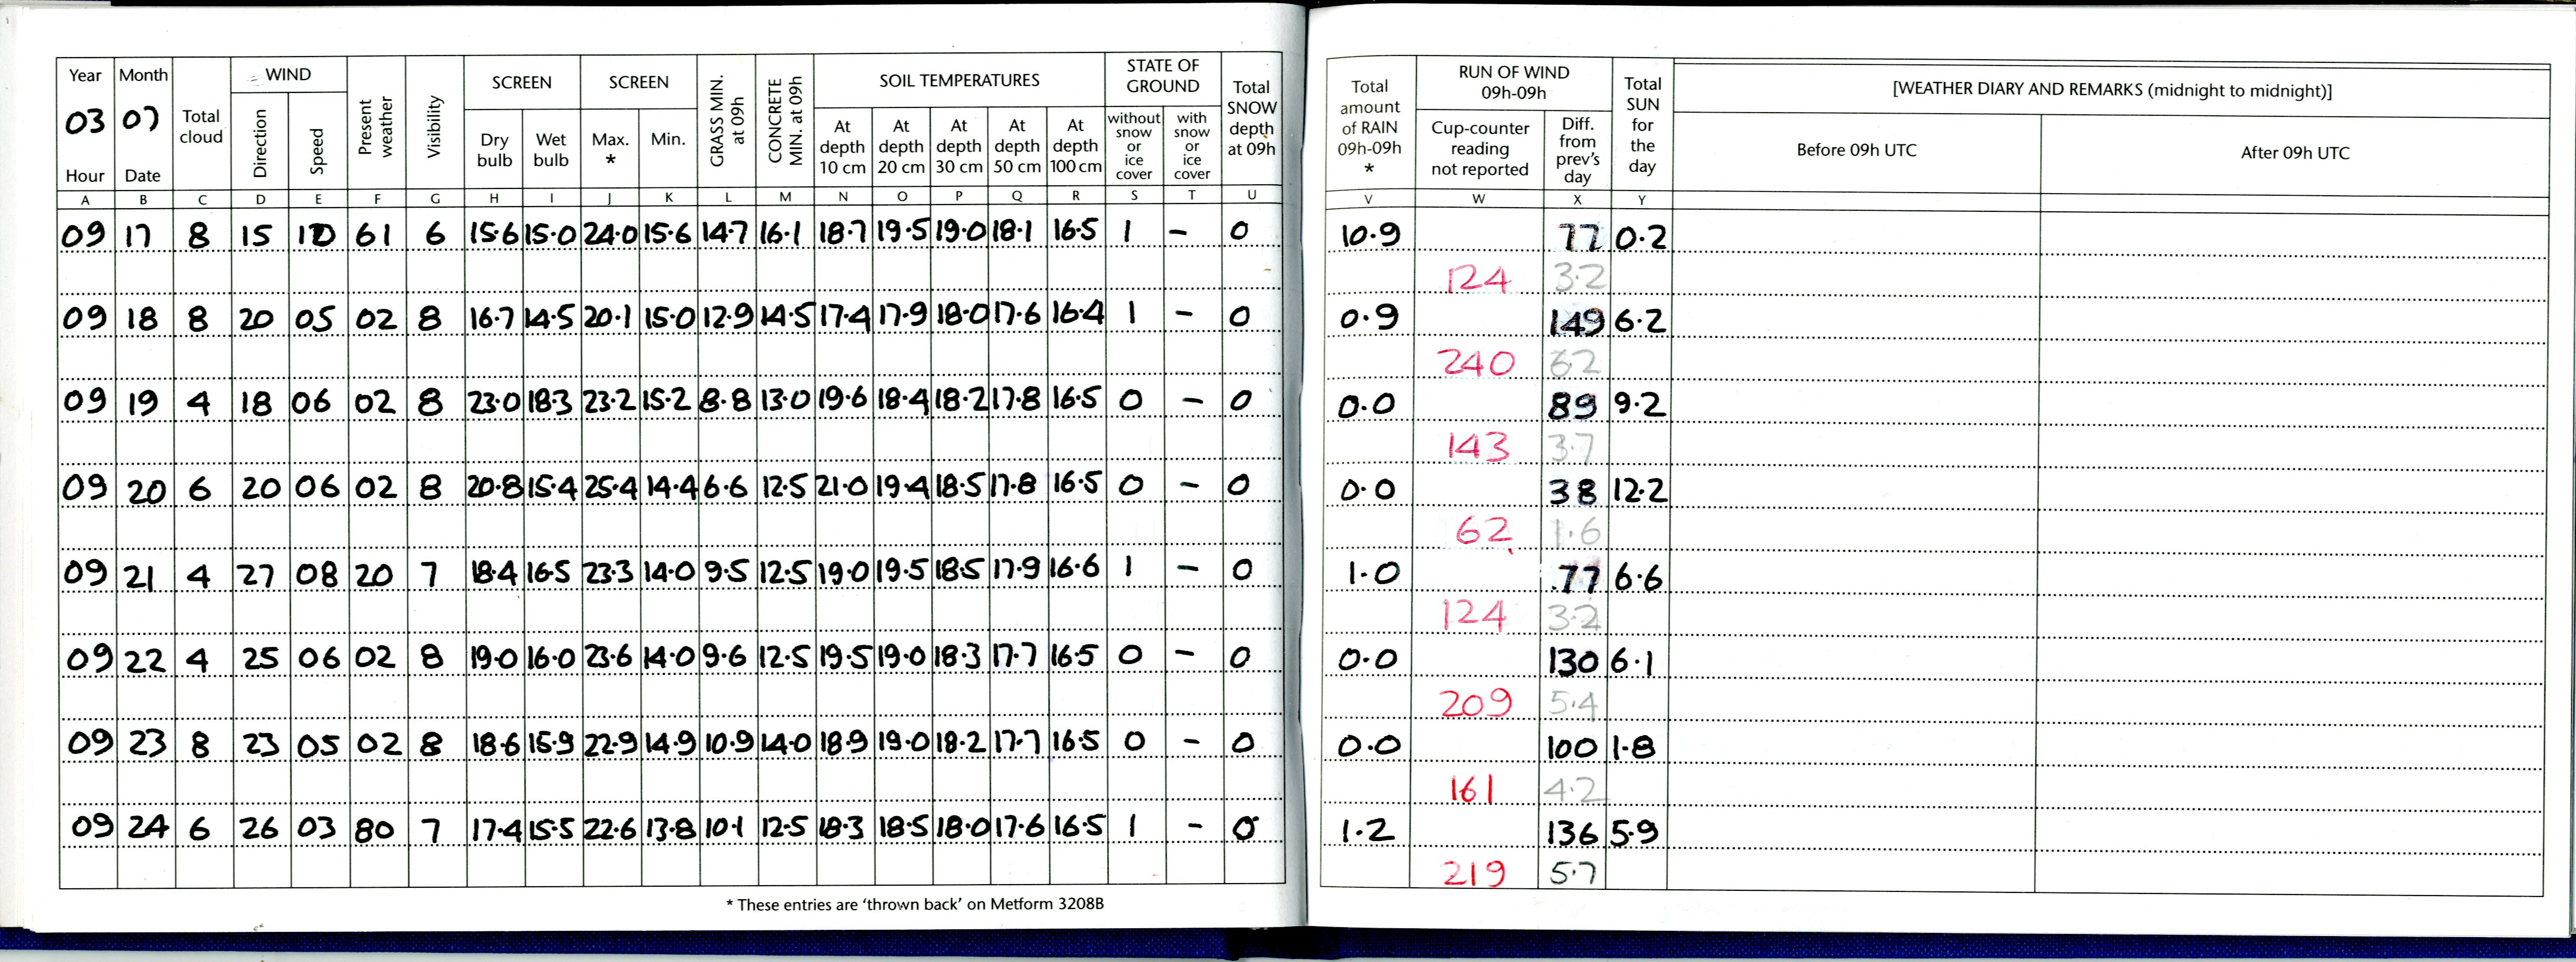 Year Month WIND SCREEN SCREEN SOIL TEMPERATURES STATE OF GROUND
03 07 Total cloud Direction Speed Present weather Visibility Dry bulb Wet bulb Max. * Min. GRASS MIN. at 09h CONCRETE MIN. at 09h At depth 10 cm At depth 20 cm At depth 30 cm At depth 50 cm At depth 100 cm without snow or ice cover with snow or ice cover Total SNOW depth at 09h
Hour Date
A B C D E F G H I J K L M N O P Q R S T U
09 17 8 15 10 61 6 15.6 15.0 24.0 15.6 14.7 16.1 18.7 19.5 19.0 18.1 16.5 1 – 0
09 18 8 20 05 02 8 16.7 14.5 20.1 15.0 12.9 14.5 17.4 17.9 18.0 17.6 16.4 1 – 0
09 19 4 18 06 02 8 23.0 18.3 23.2 15.2 8.8 13.0 19.6 18.4 18.2 17.8 16.5 0 – 0
09 20 6 20 06 02 8 20.8 15.4 25.4 14.4 6.6 12.5 21.0 19.4 18.5 17.8 16.5 0 – 0
09 21 4 27 08 20 7 18.4 16.5 23.3 14.0 9.5 12.5 19.0 19.5 18.5 17.9 16.6 1 – 0
09 22 4 25 06 02 8 19.0 16.0 23.6 14.0 9.6 12.5 19.5 19.0 18.3 17.7 16.5 0 – 0
09 23 8 23 05 02 8 18.6 15.9 22.9 14.9 10.9 14.0 18.9 19.0 18.2 17.7 16.5 0 – 0
09 24 6 26 03 80 7 17.4 15.5 22.6 13.8 10.1 12.5 18.3 18.5 18.0 17.6 16.5 1 – 0
* These entries are 'thrown back' on Metform 3208B
Total amount of RAIN 09h-09h * RUN OF WIND 09h-09h Total SUN for the day [WEATHER DIARY AND REMARKS (midnight to midnight)]
Cup-counter reading not reported Diff. from prev's day Before 09h UTC After 09h UTC
V W X Y
10.9 77 0.2
124 3.2
0.9 149 6.2
240 6.2
0.0 89 9.2
143 3.7
0.0 38 12.2
62 1.6
1.0 77 6.6
124 3.2
0.0 130 6.1
209 5.4
0.0 100 1.8
161 4.2
1.2 136 5.9
219 5.7